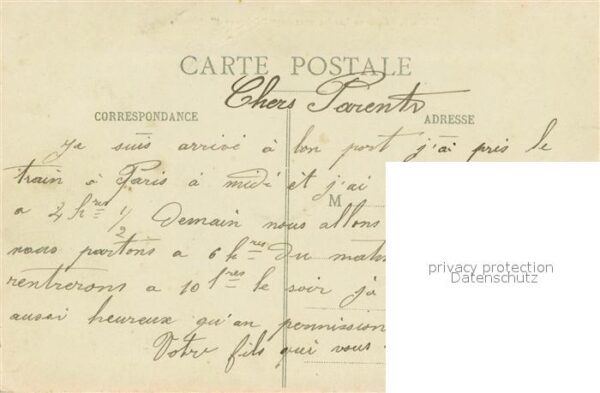 CARTE POSTALE
Chers Parents
CORRESPONDANCE
ADRESSE
Je suis arrivé à bon port j'ai pris le
train à Paris à midi et j'ai
M
a 4 hres 1/2 Demain nous allons
nous partons a 6 hres du matin
rentrerons a 10 hres le soir
aussi heureux qu'en permission
Votre fils qui vous
privacy protection
Datenschutz